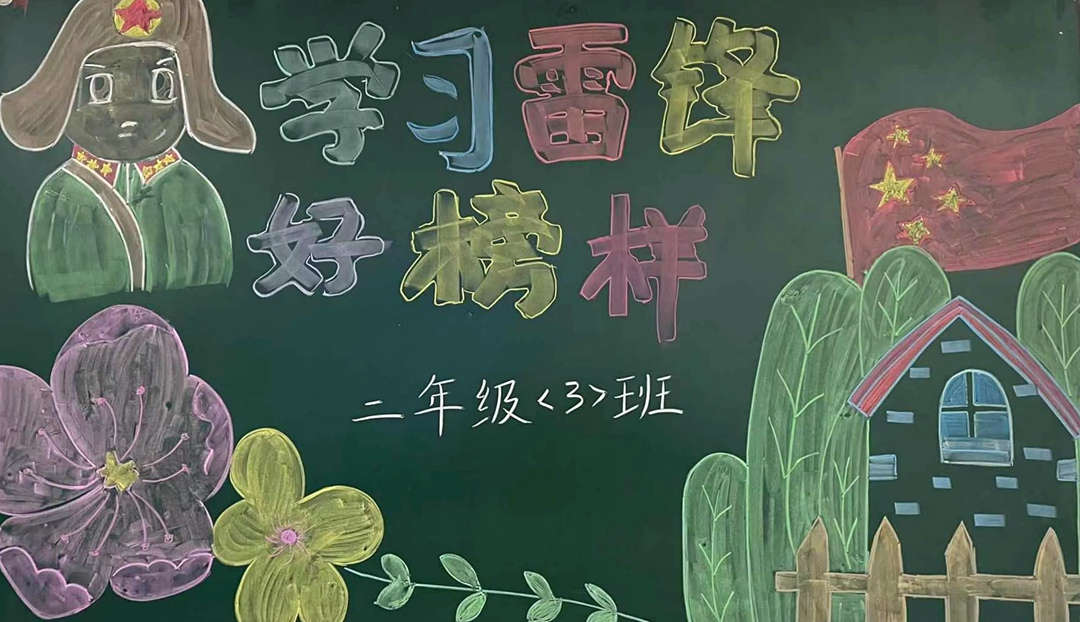 学习雷锋
好榜样
二年级<3>班